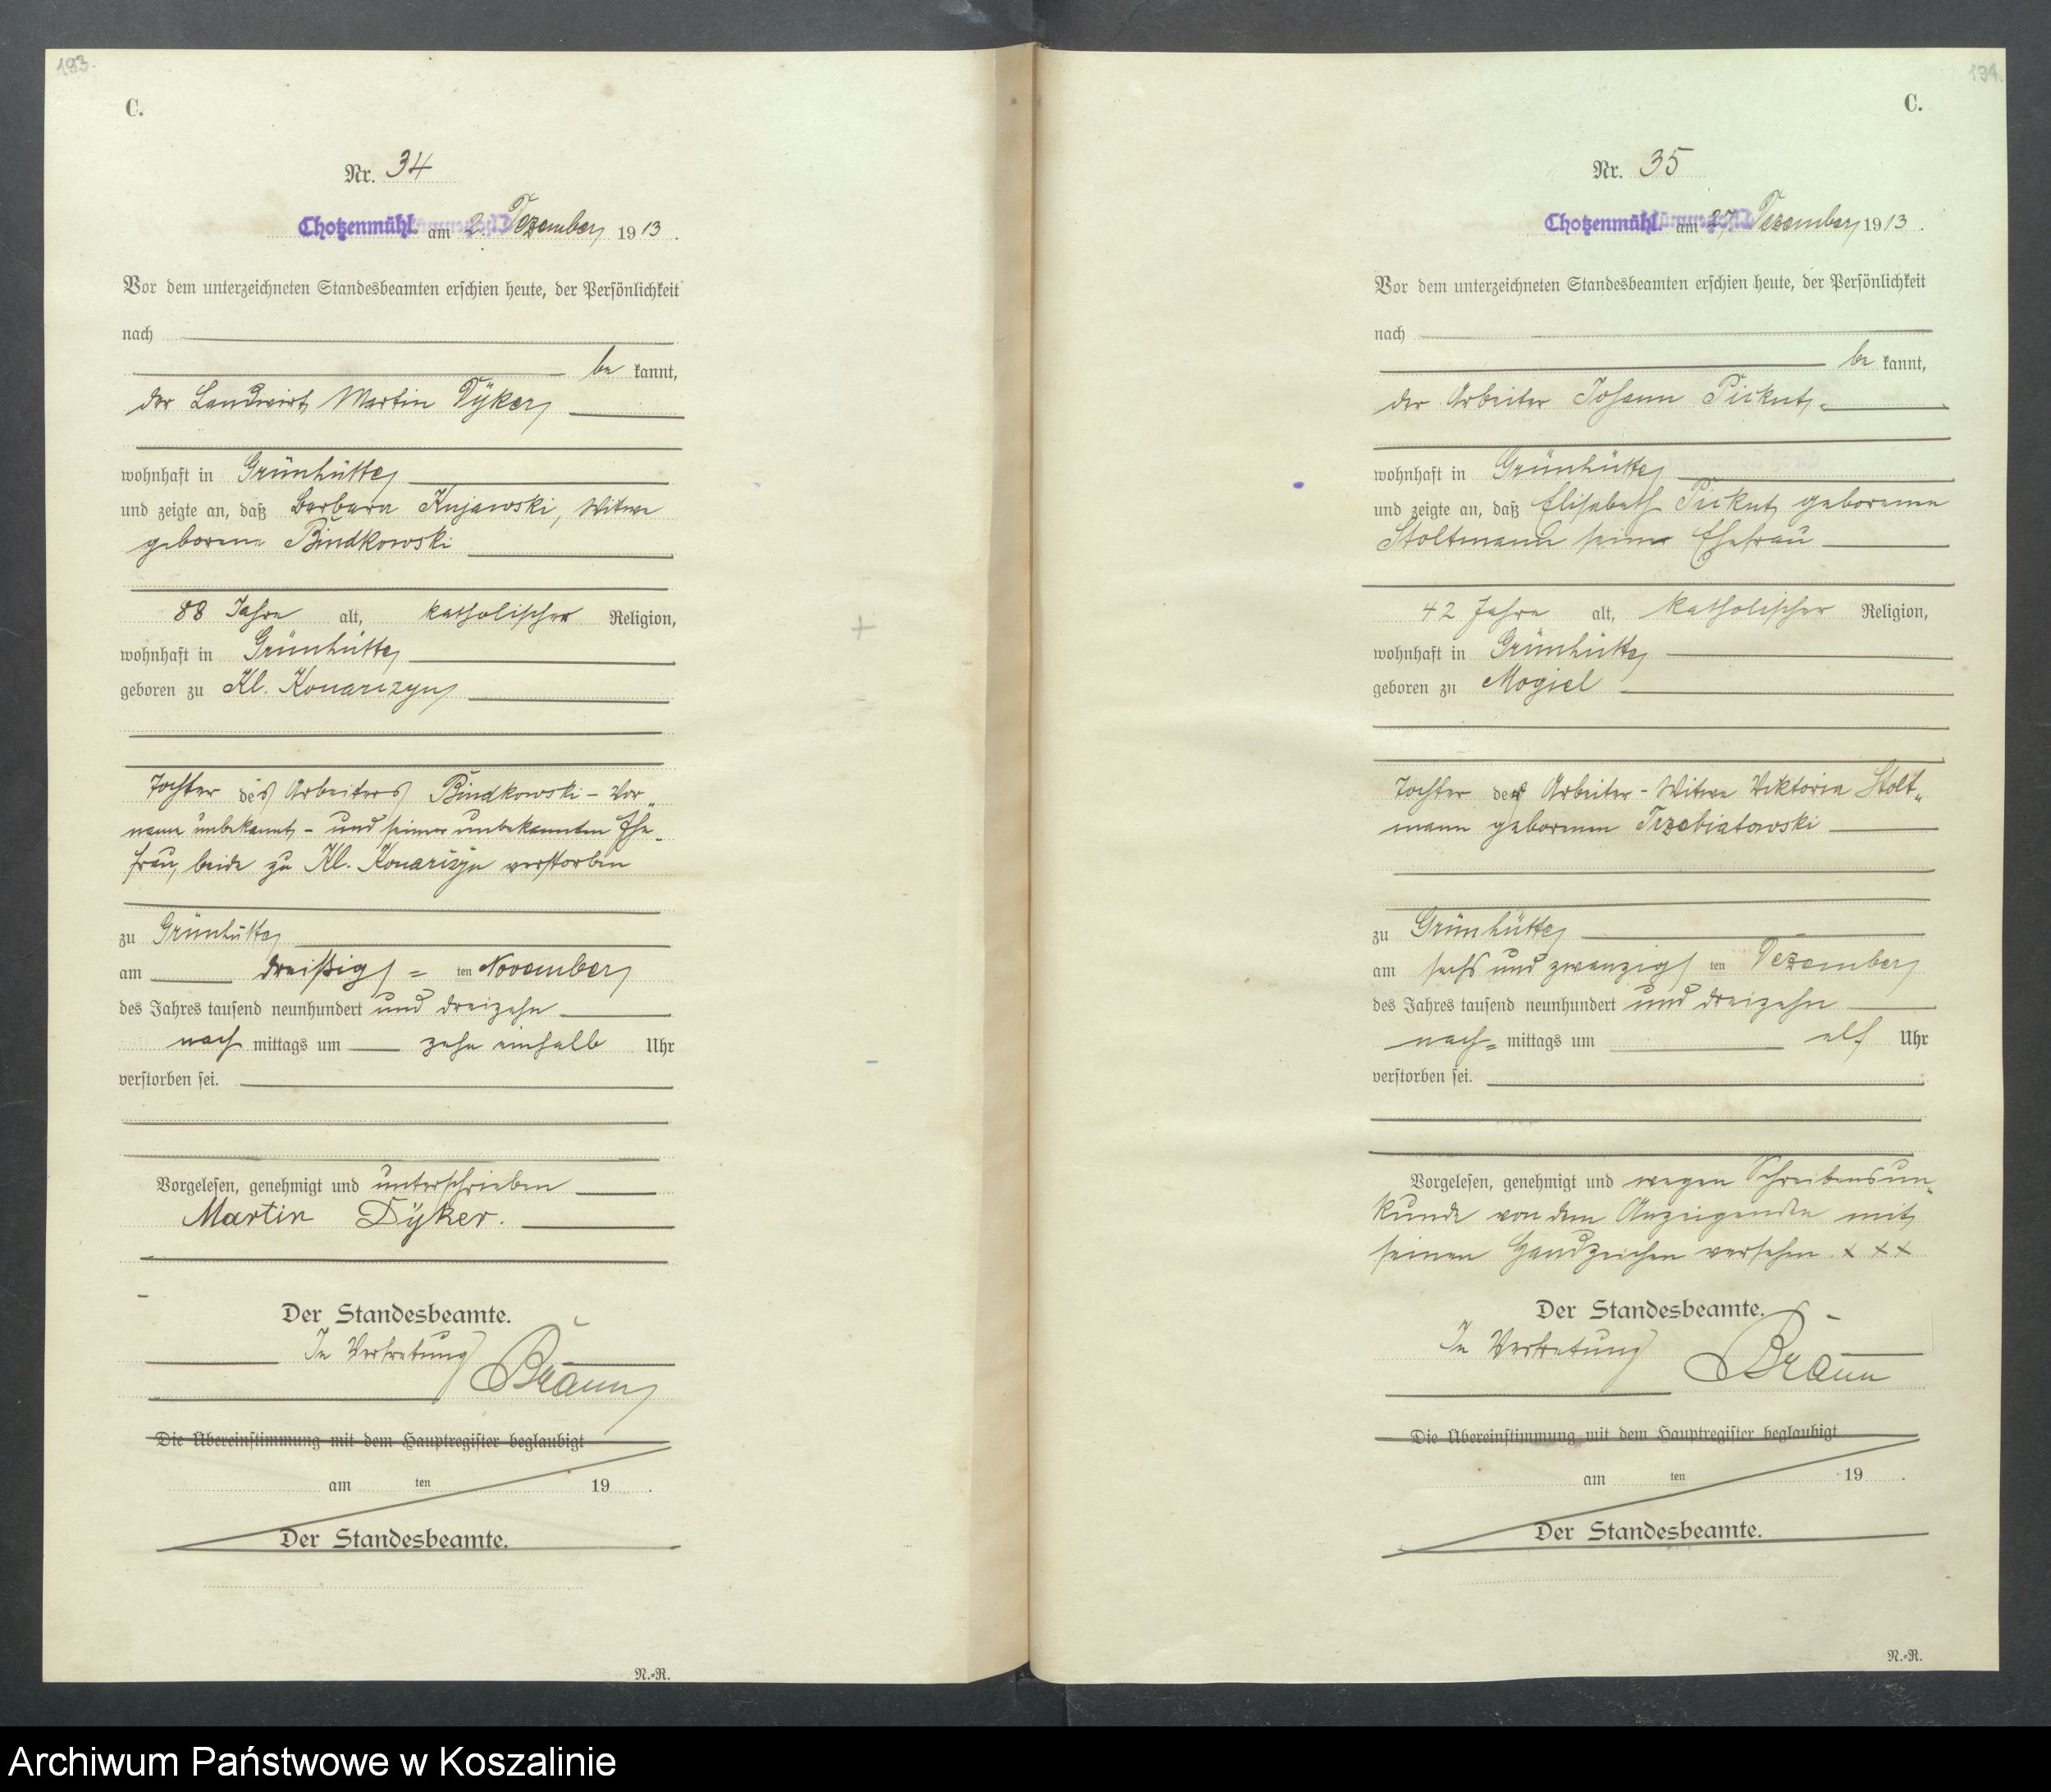 193.
C.
Nr. 34
Chotzenmühl am 2. Dezember 1913.
Vor dem unterzeichneten Standesbeamten erschien heute, der Persönlichkeit
nach
be kannt,
der Landwirt Martin Dyker,
wohnhaft in Grünhütte
und zeigte an, daß Barbara Kujawski, Witwe
geborene Bindkowski
88 Jahre alt, katholischer Religion,
wohnhaft in Grünhütte
geboren zu Kl. Konarczyn
Tochter des Arbeiters Bindkowski - Vor„
name unbekannt - und seiner unbekannten Ehe„
frau, beide zu Kl. Konarczyn verstorben
zu Grünhütte
am dreißig = ten November
des Jahres tausend neunhundert und dreizehn
nach mittags um zehn einhalb Uhr
verstorben sei.
Vorgelesen, genehmigt und unterschrieben
Martin Dÿker.
Der Standesbeamte.
In Vertretung
Braun
Die Übereinstimmung mit dem Hauptregister beglaubigt
am ten 19 .
Der Standesbeamte.
N.=R.
194.
C.
Nr. 35
Chotzenmühl am 27. Dezember 1913.
Vor dem unterzeichneten Standesbeamten erschien heute, der Persönlichkeit
nach
be kannt,
der Arbeiter Johann
wohnhaft in Grünhütte
und zeigte an, daß Elisabeth geborene
Stoltmann seine Ehefrau
42 Jahre alt, katholischer Religion,
wohnhaft in Grünhütte
geboren zu Mogiel
Tochter der Arbeiter-Witwe Viktoria Stolt„
mann geborenen Trzebiatowski
zu Grünhütte
am sechs und zwanzigs ten Dezember
des Jahres tausend neunhundert und dreizehn
nach= mittags um elf Uhr
verstorben sei.
Vorgelesen, genehmigt und wegen Schreibensun„
kunde von dem Anzeigenden mit
seinen Handzeichen versehen. x x x
Der Standesbeamte.
In Vertretung
Braun
Die Übereinstimmung mit dem Hauptregister beglaubigt
am ten 19 .
Der Standesbeamte.
N.=R.
Archiwum Państwowe w Koszalinie